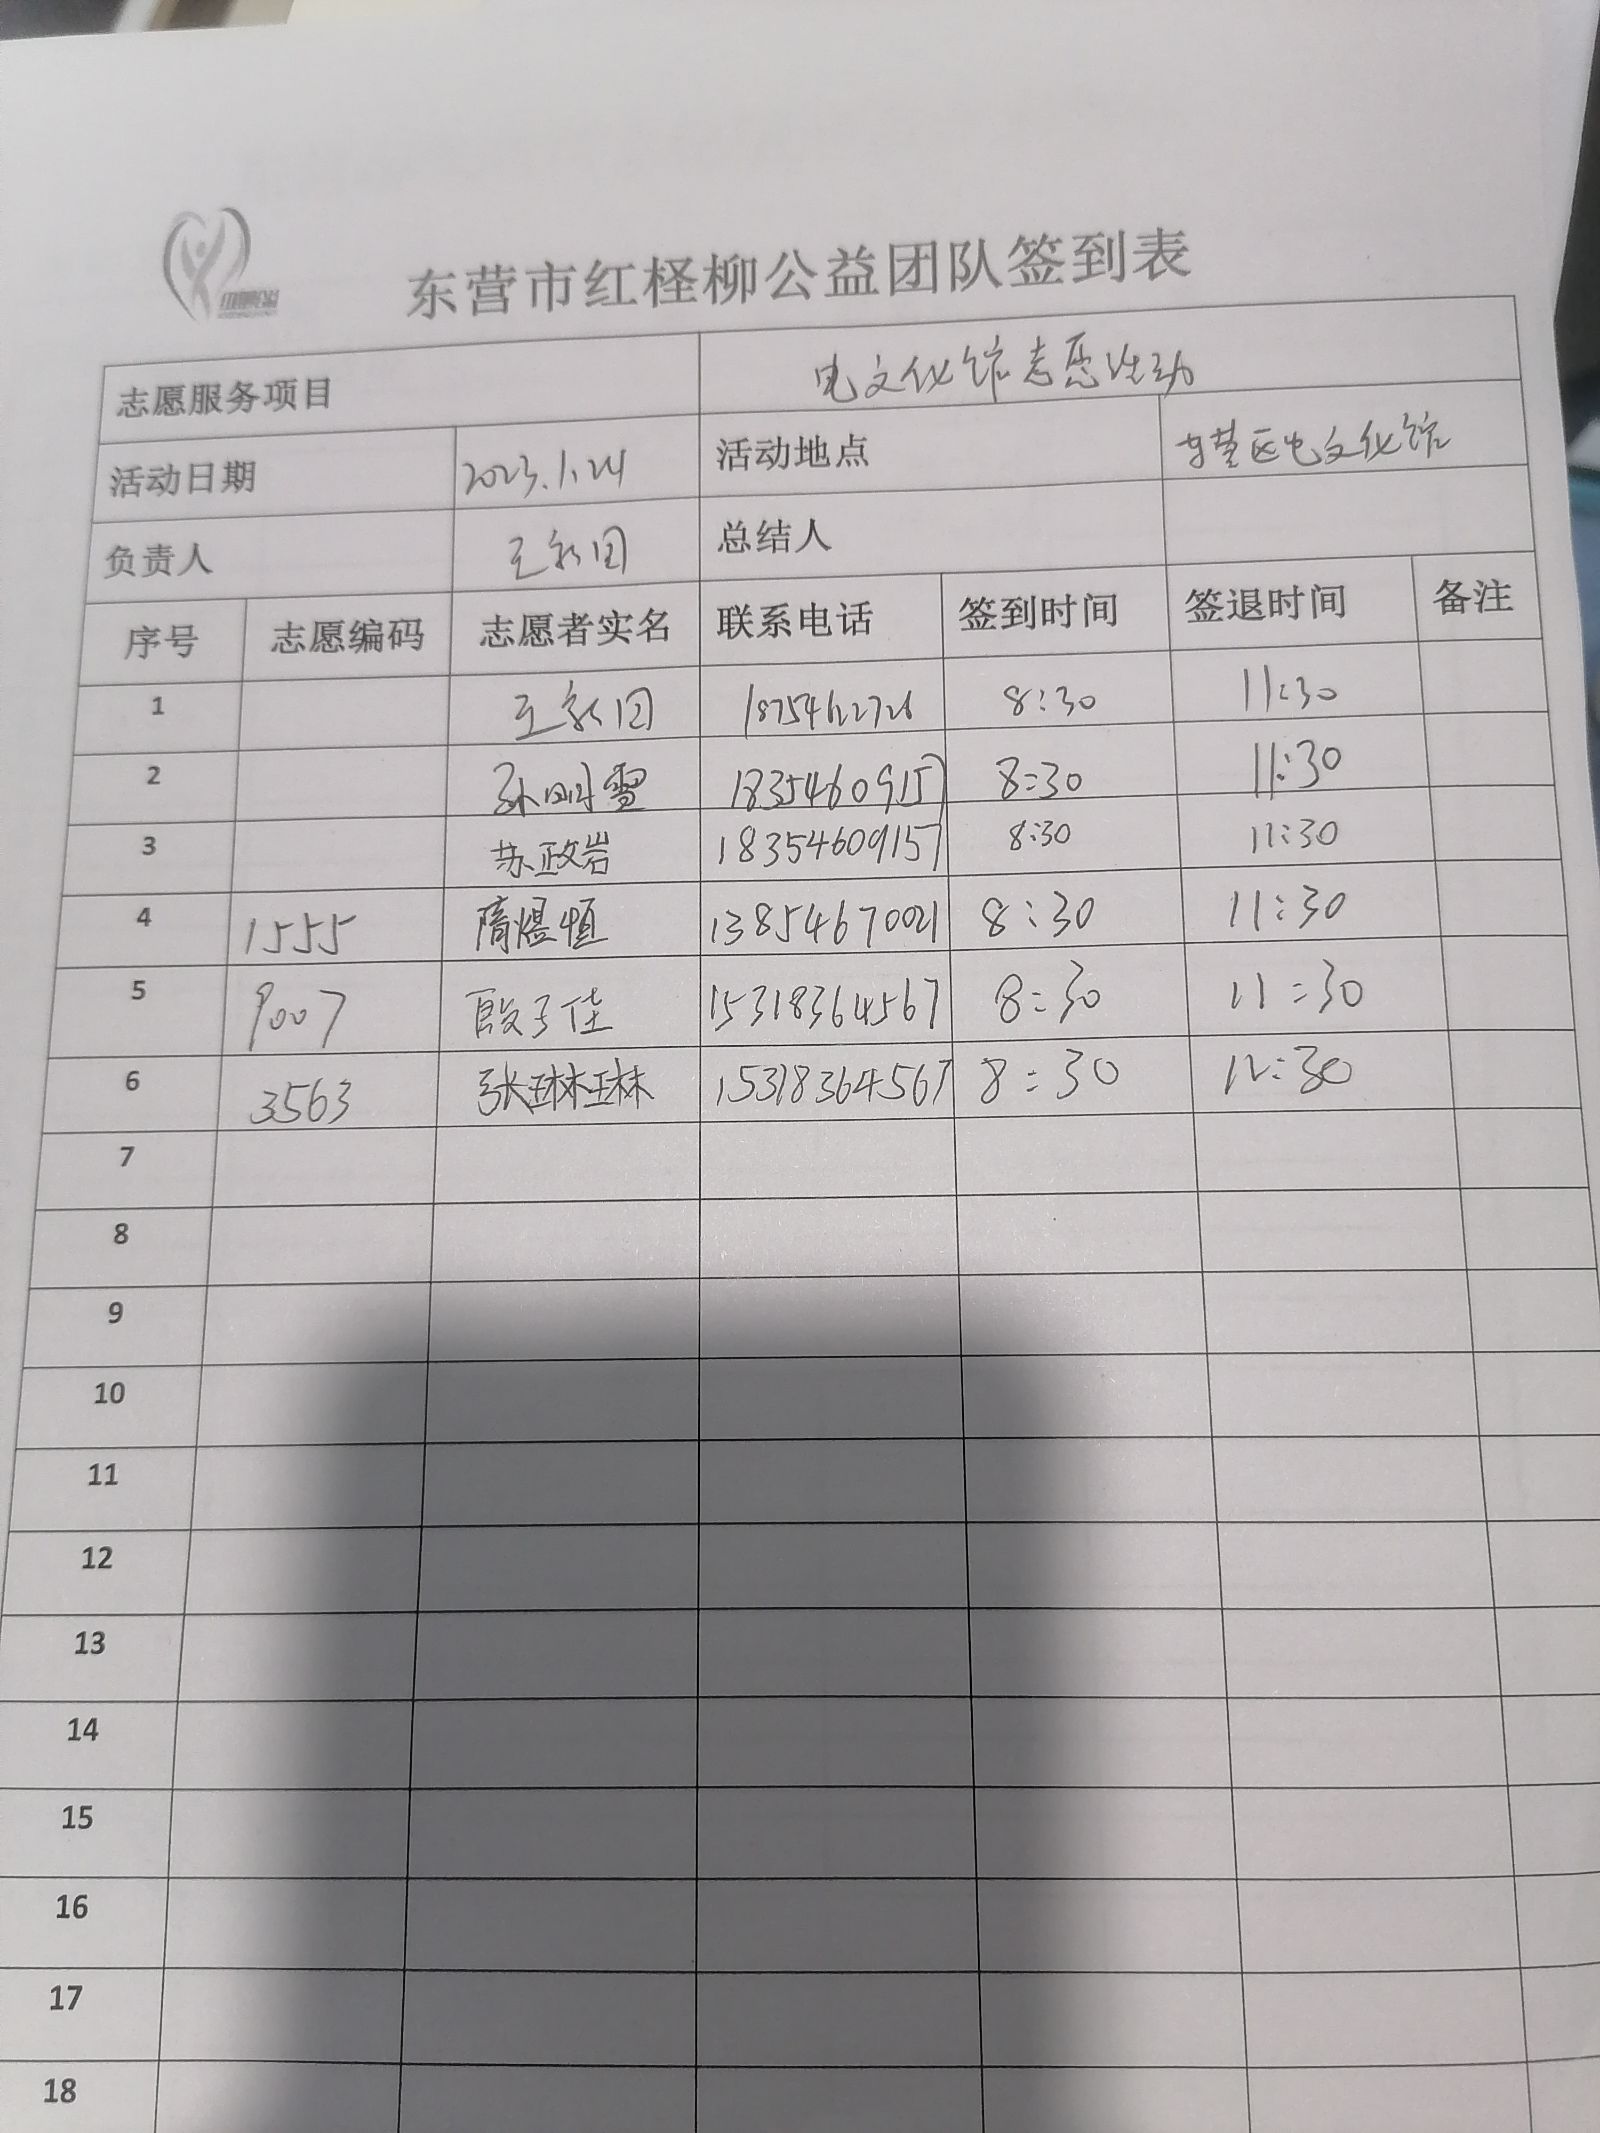 东营市红柽柳公益团队签到表
志愿服务项目 电文化馆志愿活动
活动日期 2023.1.24 活动地点 东营区电文化馆
负责人 王 总结人
序号 志愿编码 志愿者实名 联系电话 签到时间 签退时间 备注
1 王 8:30 11:30
2 孙明雪 18354609157 8:30 11:30
3 苏政岩 18354609157 8:30 11:30
4 1555 隋煜恒 13854670021 8:30 11:30
5 9007 殷子佳 15318364567 8:30 11:30
6 3563 张琳琳 15318364567 8:30 12:30
7
8
9
10
11
12
13
14
15
16
17
18